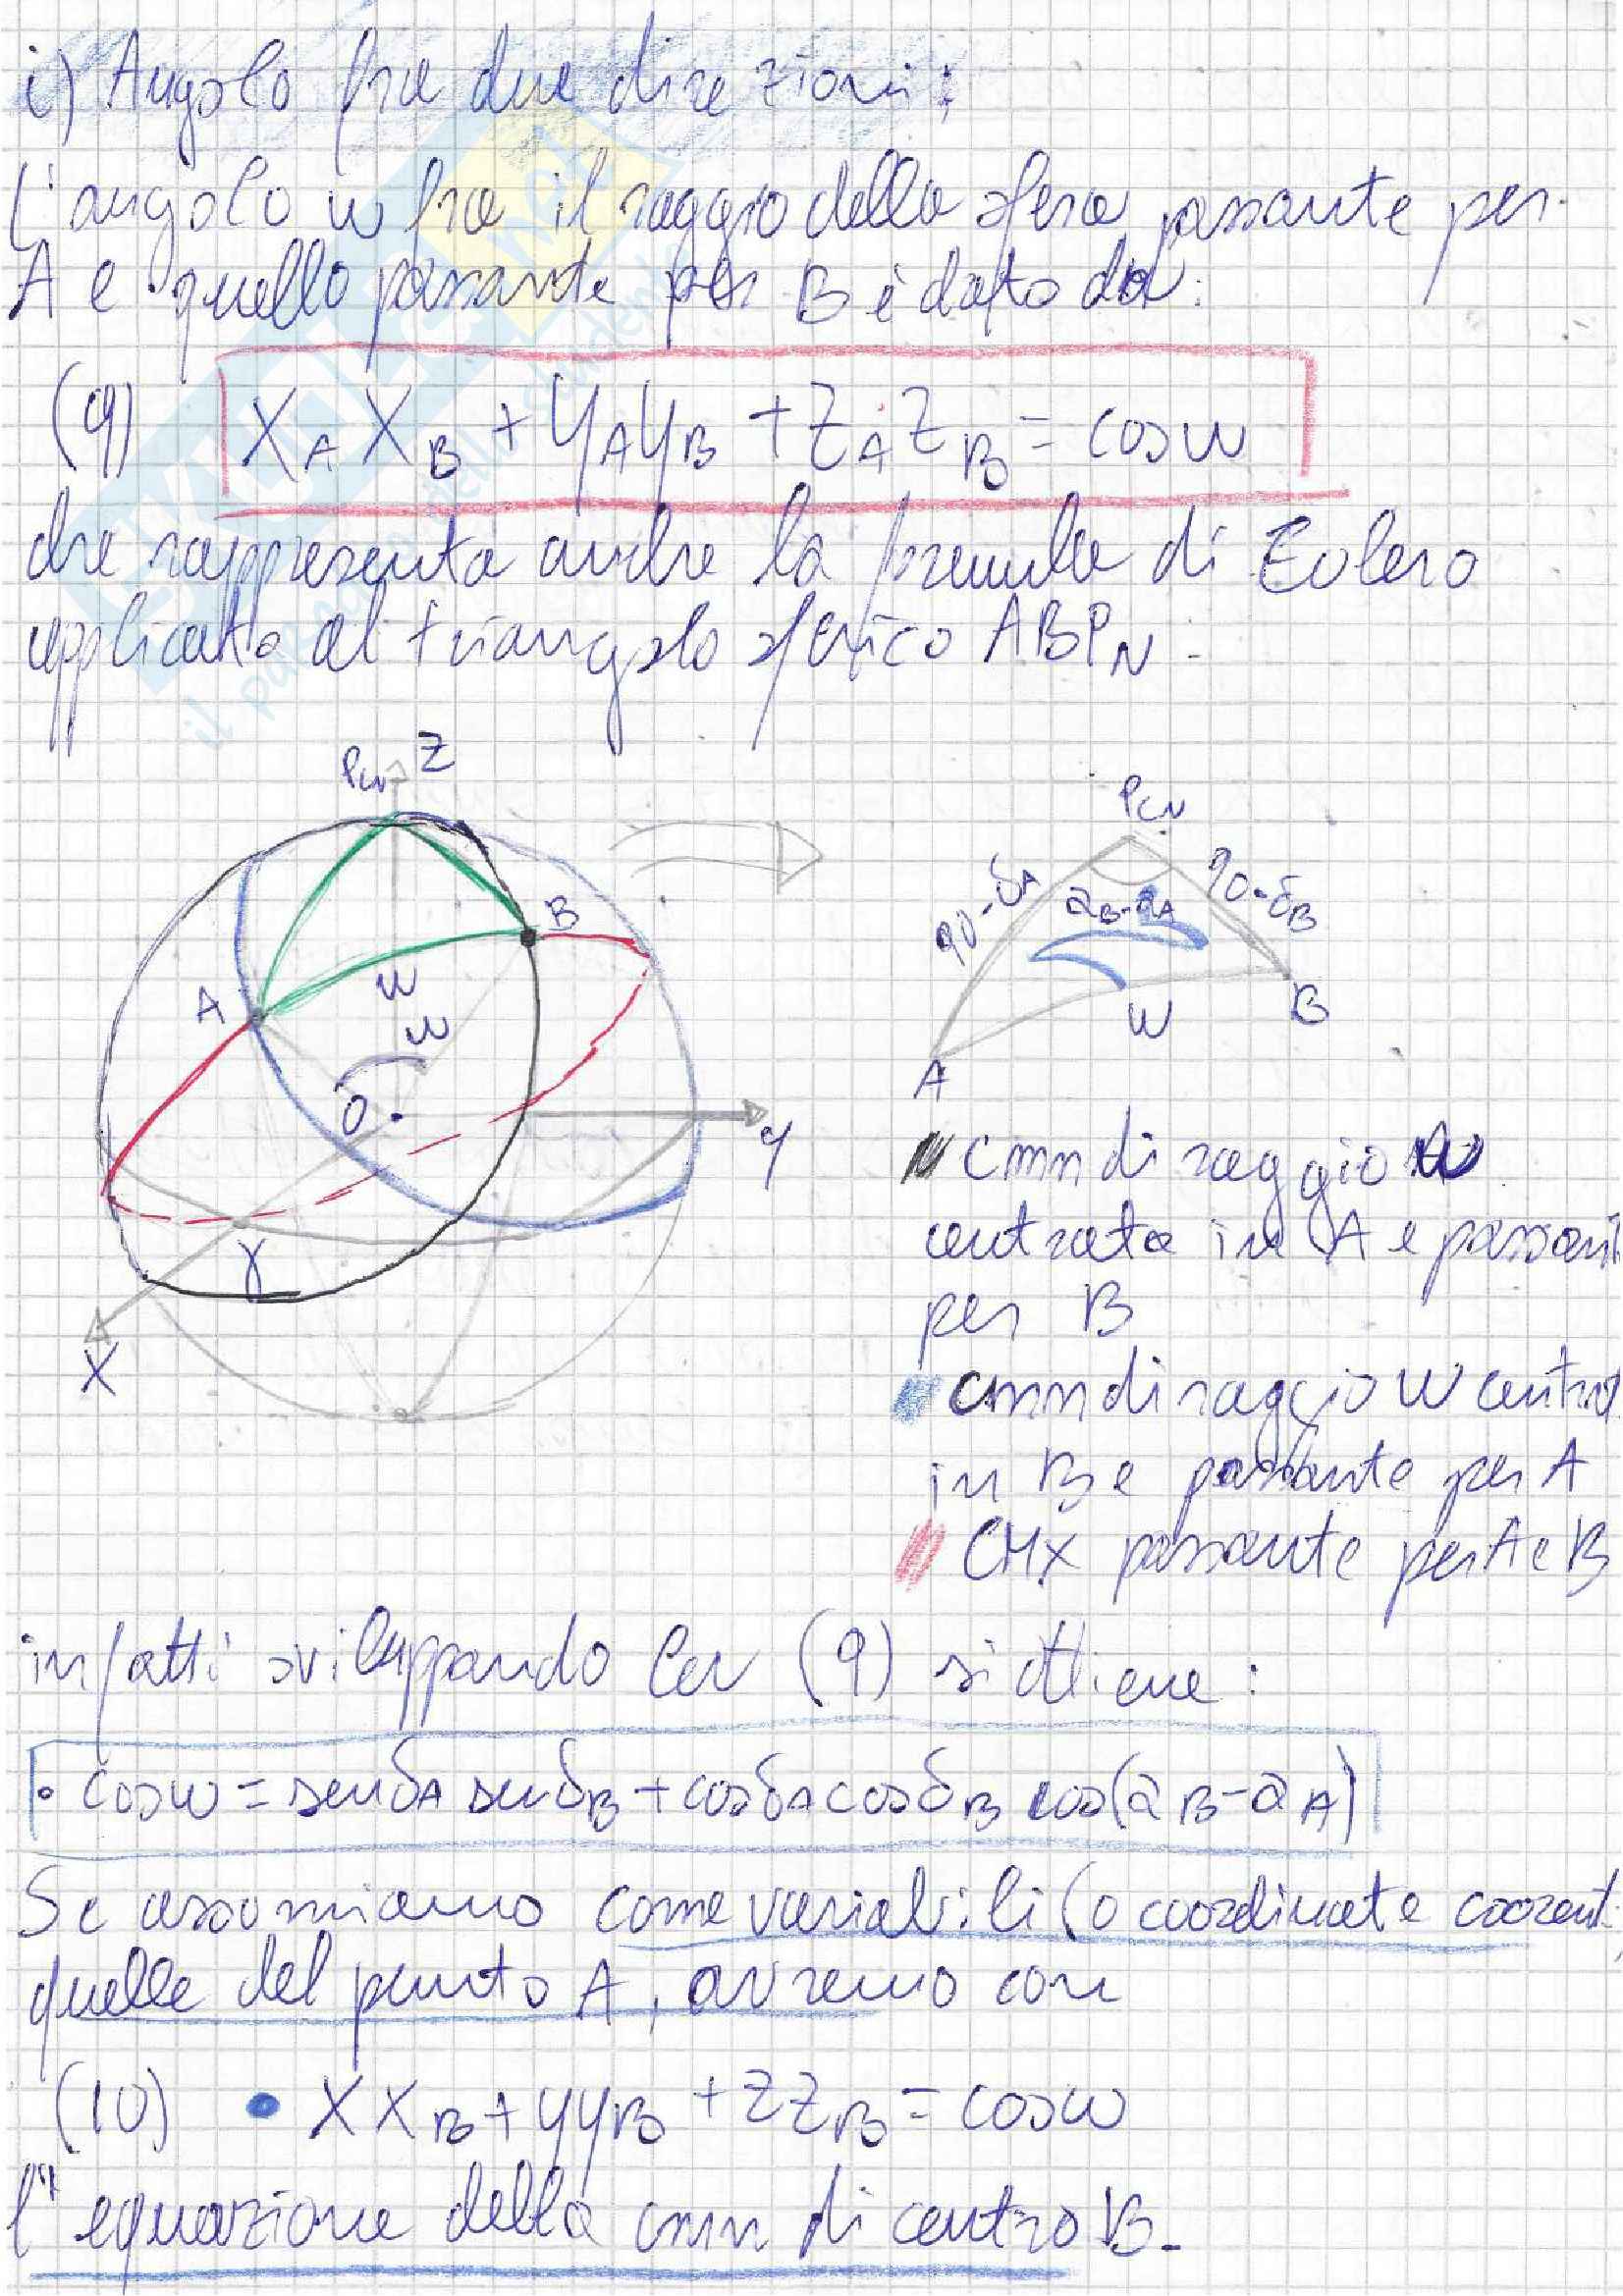 i) Angolo fra due direzioni:
L'angolo w fra il raggio della sfera passante per
A e quello passante per B è dato da:
(9) XA XB + YA YB + ZA ZB = cosw
che rappresenta anche la formula di Eulero
applicata al triangolo sferico ABPN.
PCN Z
B
A
w
w
O
Y
γ
X
PCN
90-δA
90-δB
aB-aA
w
B
A
cmn di raggio w
centrata in A e passant
per B
cmn di raggio w centrat
in B e passante per A
CMX passante per A e B
infatti sviluppando la (9) si ottiene:
• cosw = senδA senδB + cosδA cosδB cos(aB-aA)
Se assumiamo come variabili (o coordinate corrent
quelle del punto A, avremo con
(10) • X XB + Y YB + Z ZB = cosw
l'equazione della cmn di centro B.